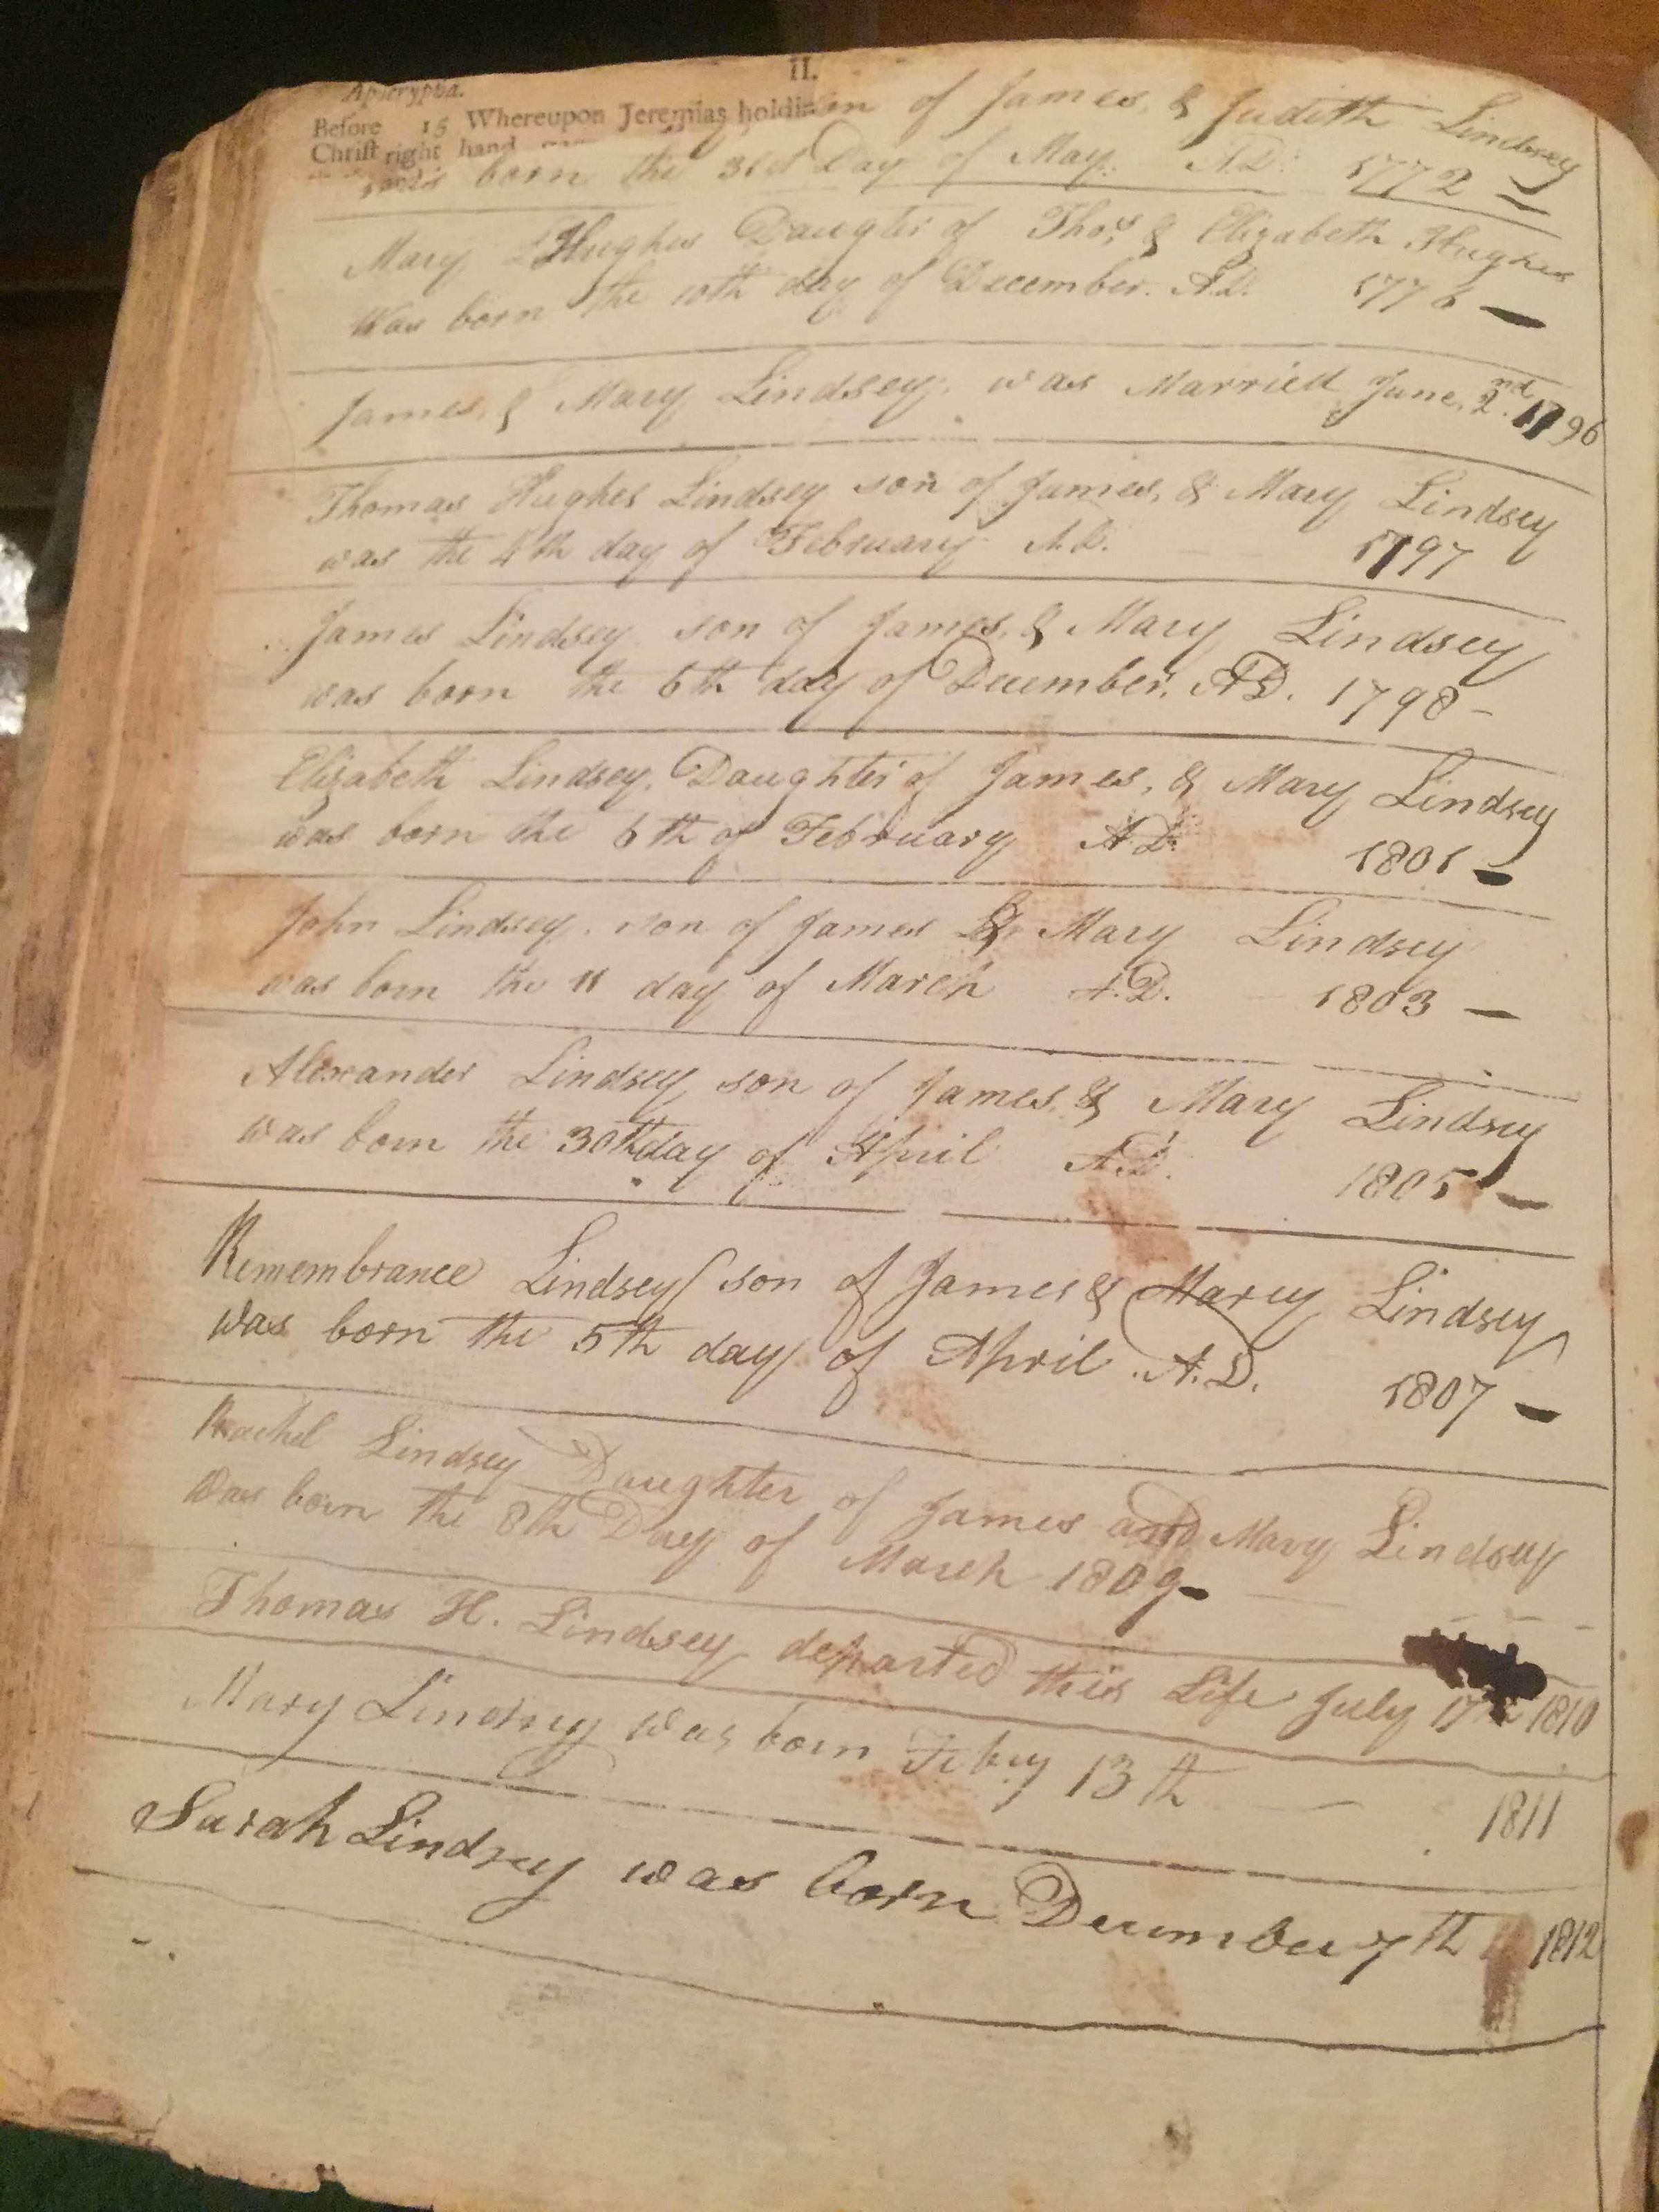 II.
Apocrypha.
Before 15 Whereupon Jeremias holdin
Christ right hand
of James, & Judith Lindsey
born the 31st Day of May. A.D. 1772
Mary Hughes Daughter of Thos. & Elizabeth Hughes
Was born the 10th day of December. A.D. 1776
James, & Mary Lindsey, was Married June, 2nd. 1796
Thomas Hughes Lindsey son of James, & Mary Lindsey
was the 4th day of February A.D. 1797
James Lindsey son of James, & Mary Lindsey
was born the 6th day of December, A.D. 1798
Elizabeth Lindsey, Daughter of James, & Mary Lindsey
was born the 6th of February A.D. 1801
John Lindsey. son of James & Mary Lindsey
was born the 11 day of March A.D. 1803
Alexander Lindsey son of James, & Mary Lindsey
was born the 30th day of April A.D. 1805
Remembrance Lindsey son of James & Marey Lindsey
was born the 5th day of April .A.D. 1807
Rachel Lindsey Daughter of James and Mary Lindsey
Was born the 8th Day of March 1809
Thomas H. Lindsey departed this Life July 17th 1810
Mary Lindsey was born Feby 13th 1811
Sarah Lindsey was born December 7th 1812